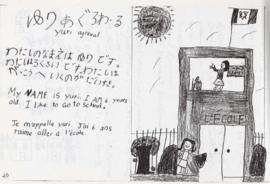 ゆり あぐろわーる
yuri agraval
わたしのなまえは ゆり です。
わたしはろくさい です。わたしは
がっこうへ いくのが だいすき。
My NAME is yuri. I AM 6 years
old. I like to go to school.
Je mappelle yuri. J'ai 6 ans
aller a l'école.
L'ÉCOLE
40